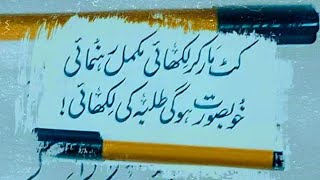 کٹ مارکر لکھائی مکمل رہنمائی
خوبصورت ہوگی طلبہ کی لکھائی!